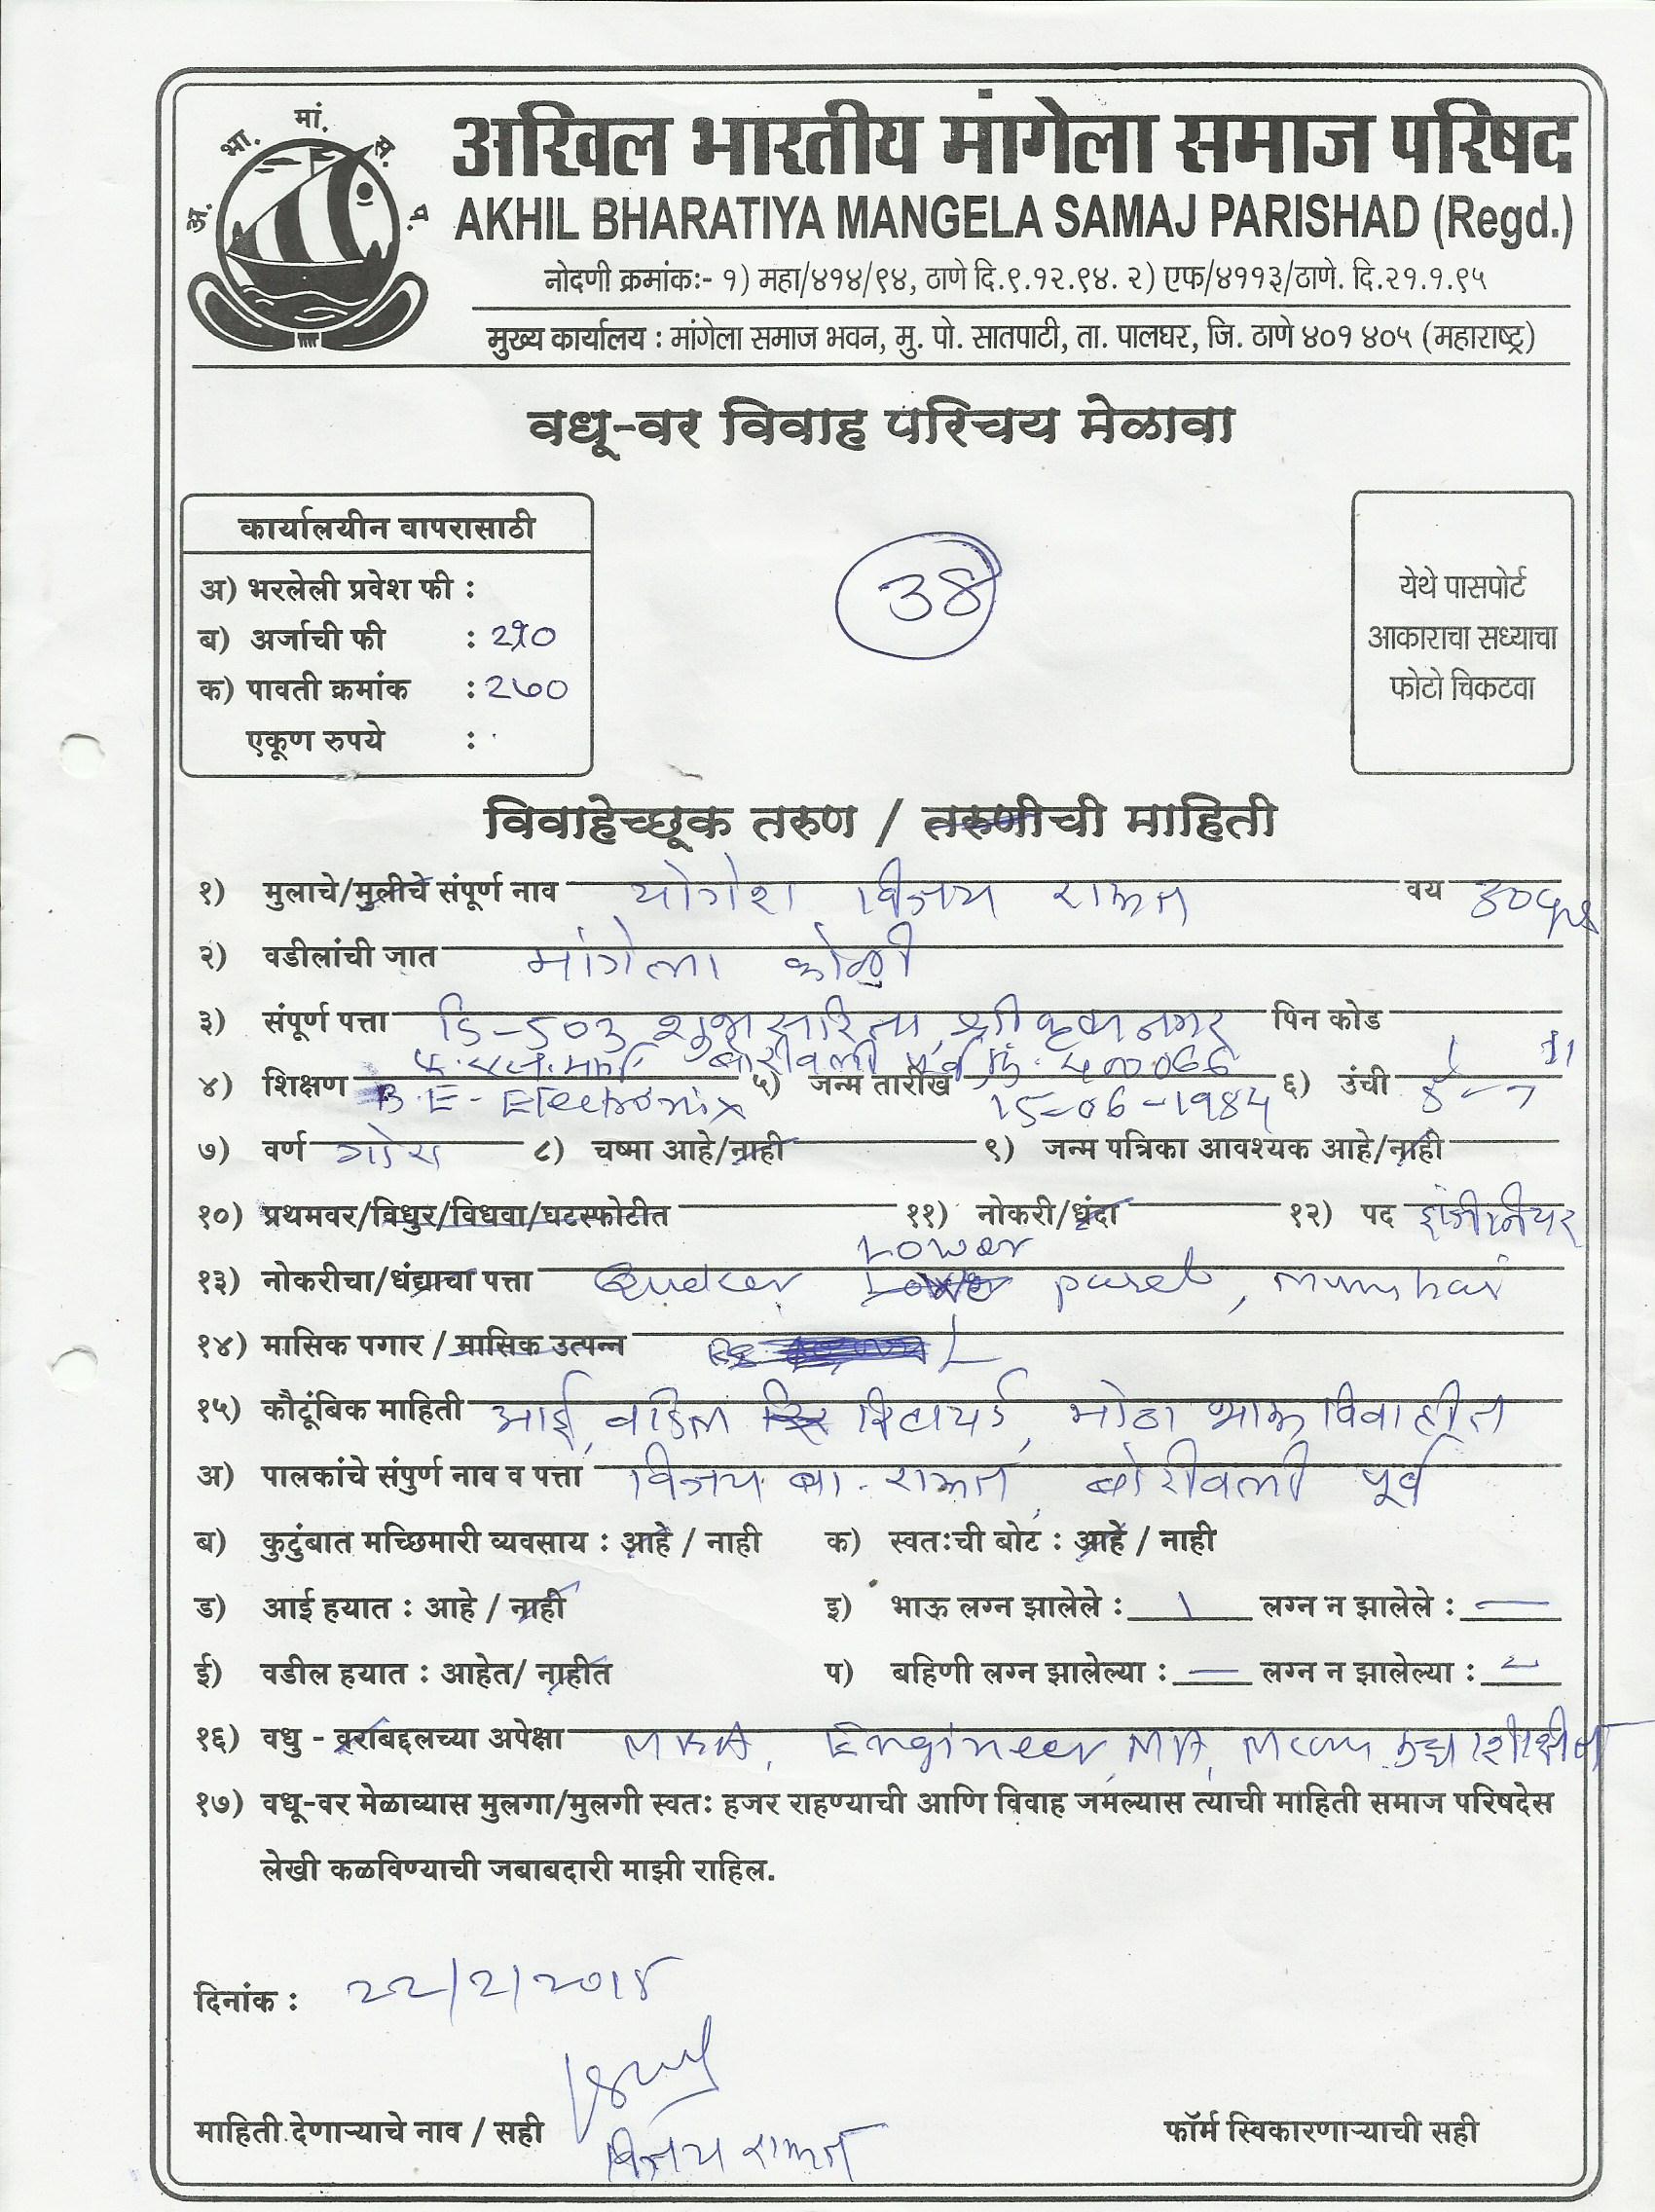 अ. भा. मां. स. प.
अखिल भारतीय मांगेला समाज परिषद
AKHIL BHARATIYA MANGELA SAMAJ PARISHAD (Regd.)
नोदणी क्रमांकः- १) महा/४१४/९४, ठाणे दि.९.१२.९४. २) एफ/४११३/ठाणे. दि.२१.१.९५
मुख्य कार्यालय : मांगेला समाज भवन, मु. पो. सातपाटी, ता. पालघर, जि. ठाणे ४०१ ४०५ (महाराष्ट्र)
वधू-वर विवाह परिचय मेळावा
कार्यालयीन वापरासाठी
अ) भरलेली प्रवेश फी :
ब) अर्जाची फी :
क) पावती क्रमांक : २७०
एकूण रुपये :
38
येथे पासपोर्ट
आकाराचा सध्याचा
फोटो चिकटवा
विवाहेच्छूक तरुण / तरुणीची माहिती
१) मुलाचे/मुलीचे संपूर्ण नाव योगेश विजय राऊत वय
२) वडीलांची जात मांगेला कोळी
३) संपूर्ण पत्ता डि-503 शुभ सरिता, श्रीकृष्ण नगर पिन कोड
बोरीवली पूर्व मुं. 400066
४) शिक्षण B.E- Electronix ५) जन्म तारीख 15-06-1984 ६) उंची
७) वर्ण गोरा ८) चष्मा आहे/नाही ९) जन्म पत्रिका आवश्यक आहे/नाही
१०) प्रथमवर/विधुर/विधवा/घटस्फोटीत ११) नोकरी/धंदा १२) पद इंजीनियर
१३) नोकरीचा/धंद्याचा पत्ता Lower parel, mumbai
१४) मासिक पगार / मासिक उत्पन्न
१५) कौटूंबिक माहिती आई, वडिल रिटायर्ड, मोठा भाऊ विवाहीत
अ) पालकांचे संपुर्ण नाव व पत्ता विजय बा. राऊत, बोरीवली पूर्व
ब) कुटुंबात मच्छिमारी व्यवसाय : आहे / नाही क) स्वतःची बोट : आहे / नाही
ड) आई हयात : आहे / नाही इ) भाऊ लग्न झालेले : 1 लग्न न झालेले : —
ई) वडील हयात : आहेत/ नाहीत प) बहिणी लग्न झालेल्या : — लग्न न झालेल्या : —
१६) वधु - वराबद्दलच्या अपेक्षा MBA, Engineer, MA, Mcom
१७) वधू-वर मेळाव्यास मुलगा/मुलगी स्वतः हजर राहण्याची आणि विवाह जमल्यास त्याची माहिती समाज परिषदेस
लेखी कळविण्याची जबाबदारी माझी राहिल.
दिनांक : 22/2/2014
माहिती देणाऱ्याचे नाव / सही विजय राऊत
फॉर्म स्विकारणाऱ्याची सही